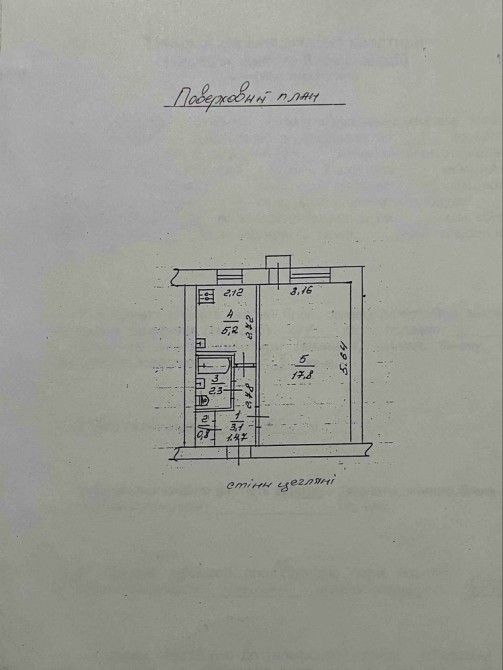 Поверховий план
2,12
3,16
4
5,2
2,72
5
17,8
5.64
3
2.3
2,78
2
0,8
1
3,1
1.47
стіни цегляні